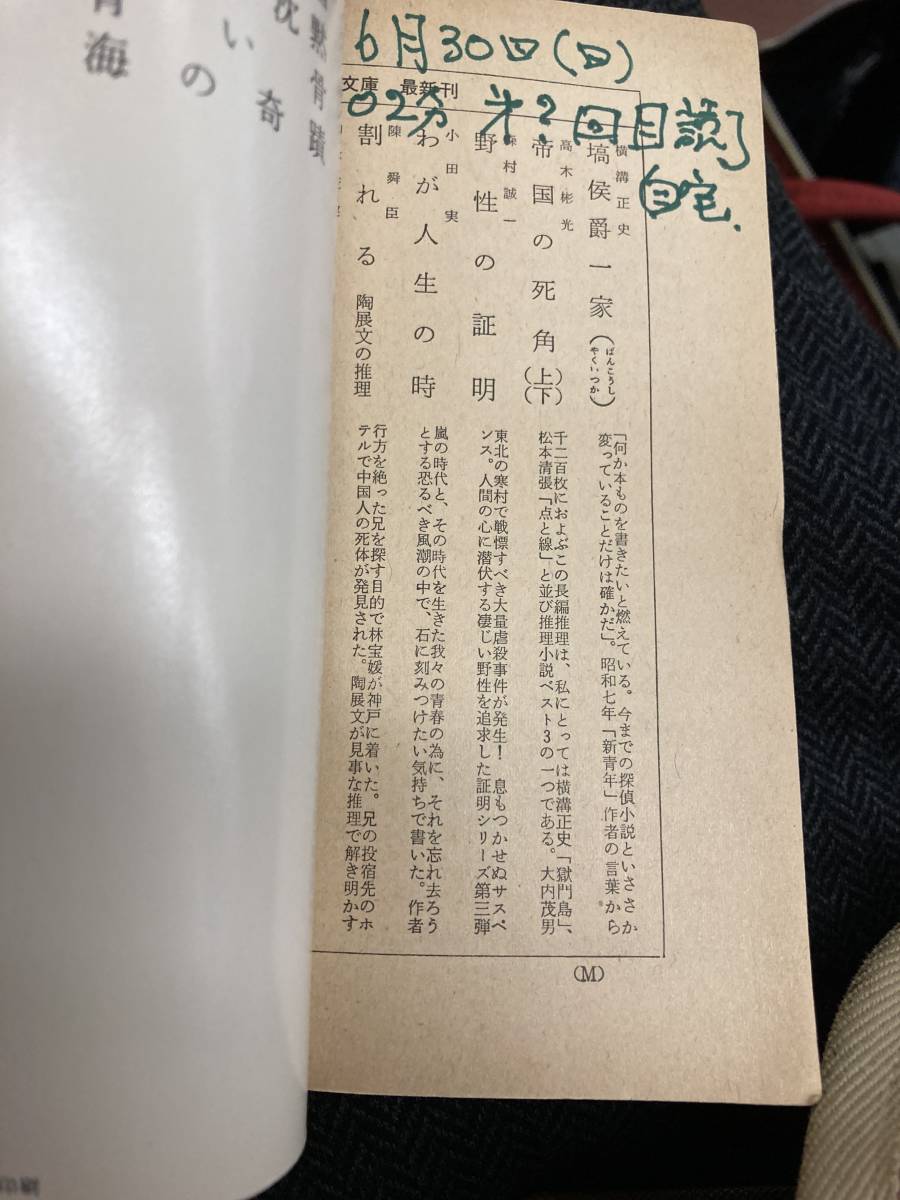 6月30日(日)
02分 才2回目読了
自宅.
文庫 最新刊
横溝正史
塙侯爵一家(ばんこうしやくいつか)
「何か本ものを書きたいと燃えている。今までの探偵小説といささか
変っていることだけは確かだ」。昭和七年「新青年」作者の言葉から
高木彬光
帝国の死角(上)(下)
千二百枚におよぶこの長編推理は、私にとっては横溝正史「獄門島」、
松本清張「点と線」と並び推理小説ベスト3の一つである。大内茂男
森村誠一
野性の証明
東北の寒村で戦慄すべき大量虐殺事件が発生! 息もつかせぬサスペ
ンス。人間の心に潜伏する凄じい野性を追求した証明シリーズ第三弾
小田実
わが人生の時
嵐の時代と、その時代を生きた我々の青春の為に、それを忘れ去ろう
とする恐るべき風潮の中で、石に刻みつけたい気持ちで書いた。作者
陳舜臣
割れる 陶展文の推理
行方を絶った兄を探す目的で林宝媛が神戸に着いた。兄の投宿先のホ
テルで中国人の死体が発見された。陶展文が見事な推理で解き明かす
(M)
骨蹟
奇
いの
海